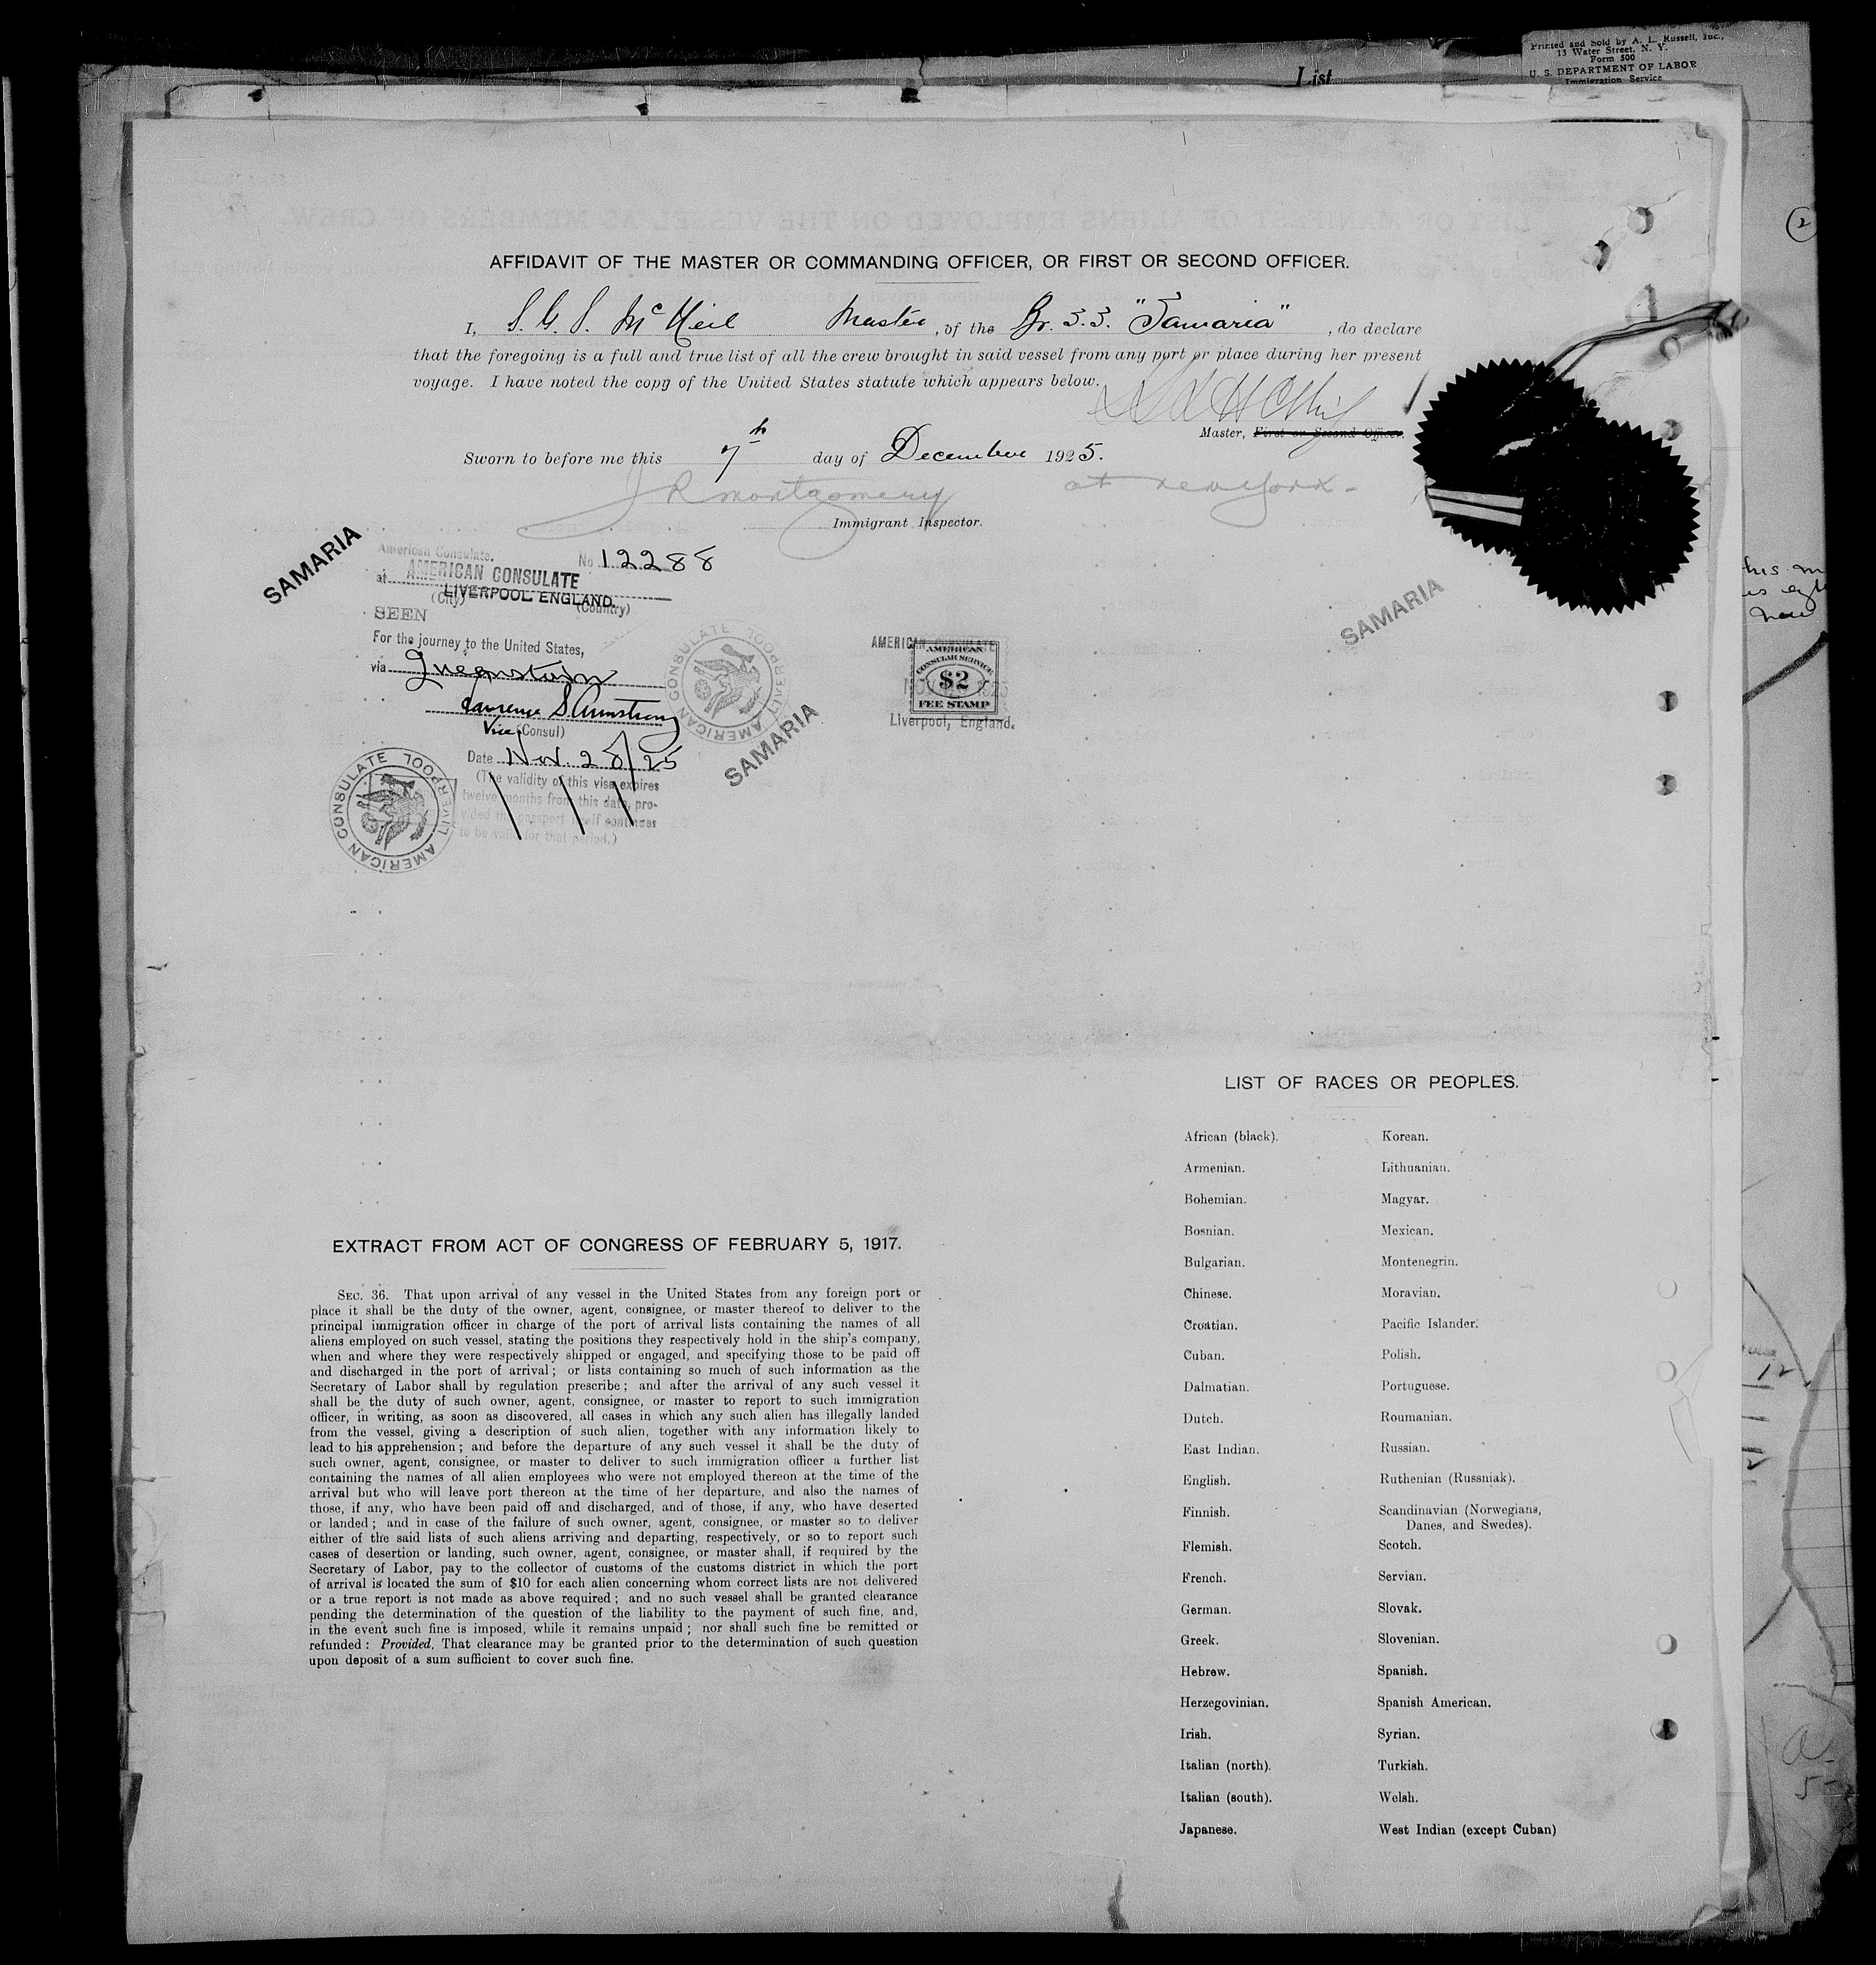 Printed and Sold by A. L. Russell, Inc.,
13 Water Street, N. Y.
Form 500
U. S. DEPARTMENT OF LABOR
Immigration Service
List
2
LIST OR MANIFEST OF ALIENS EMPLOYED ON THE VESSEL AS MEMBERS OF CREW
AFFIDAVIT OF THE MASTER OR COMMANDING OFFICER, OR FIRST OR SECOND OFFICER.
I, S. G. S. McNeil Master, of the Br. S.S. "Samaria", do declare
that the foregoing is a full and true list of all the crew brought in said vessel from any port or place during her present
voyage. I have noted the copy of the United States statute which appears below.
Master, First or Second Officer.
Sworn to before me this 7th day of December 1925.
J R Montgomery at New York-
Immigrant Inspector.
SAMARIA
American Consulate.
No 12288
at AMERICAN CONSULATE
LIVERPOOL ENGLAND.
(City) (Country)
SEEN
For the journey to the United States,
via Queenstown
Laurence S Armstrong
Vice (Consul)
Date Nov. 28/25
(The validity of this visa expires
twelve months from this date, pro-
vided the passport itself continues
to be valid for that period.)
AMERICAN CONSULATE LIVERPOOL
AMERICAN CONSULATE LIVERPOOL
SAMARIA
AMERICAN CONSULATE
AMERICAN
CONSULAR SERVICE
$2
FEE STAMP
Liverpool, England.
SAMARIA
LIST OF RACES OR PEOPLES.
African (black). Korean.
Armenian. Lithuanian.
Bohemian. Magyar.
Bosnian. Mexican.
Bulgarian. Montenegrin.
Chinese. Moravian.
Croatian. Pacific Islander.
Cuban. Polish.
Dalmatian. Portuguese.
Dutch. Roumanian.
East Indian. Russian.
English. Ruthenian (Russniak).
Finnish. Scandinavian (Norwegians,
Danes, and Swedes).
Flemish. Scotch.
French. Servian.
German. Slovak.
Greek. Slovenian.
Hebrew. Spanish.
Herzegovinian. Spanish American.
Irish. Syrian.
Italian (north). Turkish.
Italian (south). Welsh.
Japanese. West Indian (except Cuban)
EXTRACT FROM ACT OF CONGRESS OF FEBRUARY 5, 1917.
SEC. 36. That upon arrival of any vessel in the United States from any foreign port or
place it shall be the duty of the owner, agent, consignee, or master thereof to deliver to the
principal immigration officer in charge of the port of arrival lists containing the names of all
aliens employed on such vessel, stating the positions they respectively hold in the ship's company,
when and where they were respectively shipped or engaged, and specifying those to be paid off
and discharged in the port of arrival; or lists containing so much of such information as the
Secretary of Labor shall by regulation prescribe; and after the arrival of any such vessel it
shall be the duty of such owner, agent, consignee, or master to report to such immigration
officer, in writing, as soon as discovered, all cases in which any such alien has illegally landed
from the vessel, giving a description of such alien, together with any information likely to
lead to his apprehension; and before the departure of any such vessel it shall be the duty of
such owner, agent, consignee, or master to deliver to such immigration officer a further list
containing the names of all alien employees who were not employed thereon at the time of the
arrival but who will leave port thereon at the time of her departure, and also the names of
those, if any, who have been paid off and discharged, and of those, if any, who have deserted
or landed; and in case of the failure of such owner, agent, consignee, or master so to deliver
either of the said lists of such aliens arriving and departing, respectively, or so to report such
cases of desertion or landing, such owner, agent, consignee, or master shall, if required by the
Secretary of Labor, pay to the collector of customs of the customs district in which the port
of arrival is located the sum of $10 for each alien concerning whom correct lists are not delivered
or a true report is not made as above required; and no such vessel shall be granted clearance
pending the determination of the question of the liability to the payment of such fine, and,
in the event such fine is imposed, while it remains unpaid; nor shall such fine be remitted or
refunded: Provided, That clearance may be granted prior to the determination of such question
upon deposit of a sum sufficient to cover such fine.